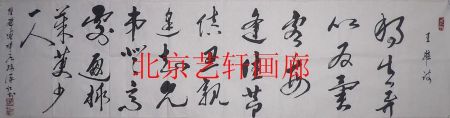 王維詩
獨在異
鄉為異
客每
逢佳節
倍思親
遙知兄
弟登高
處遍插
茱萸少
一人
北京艺轩画廊